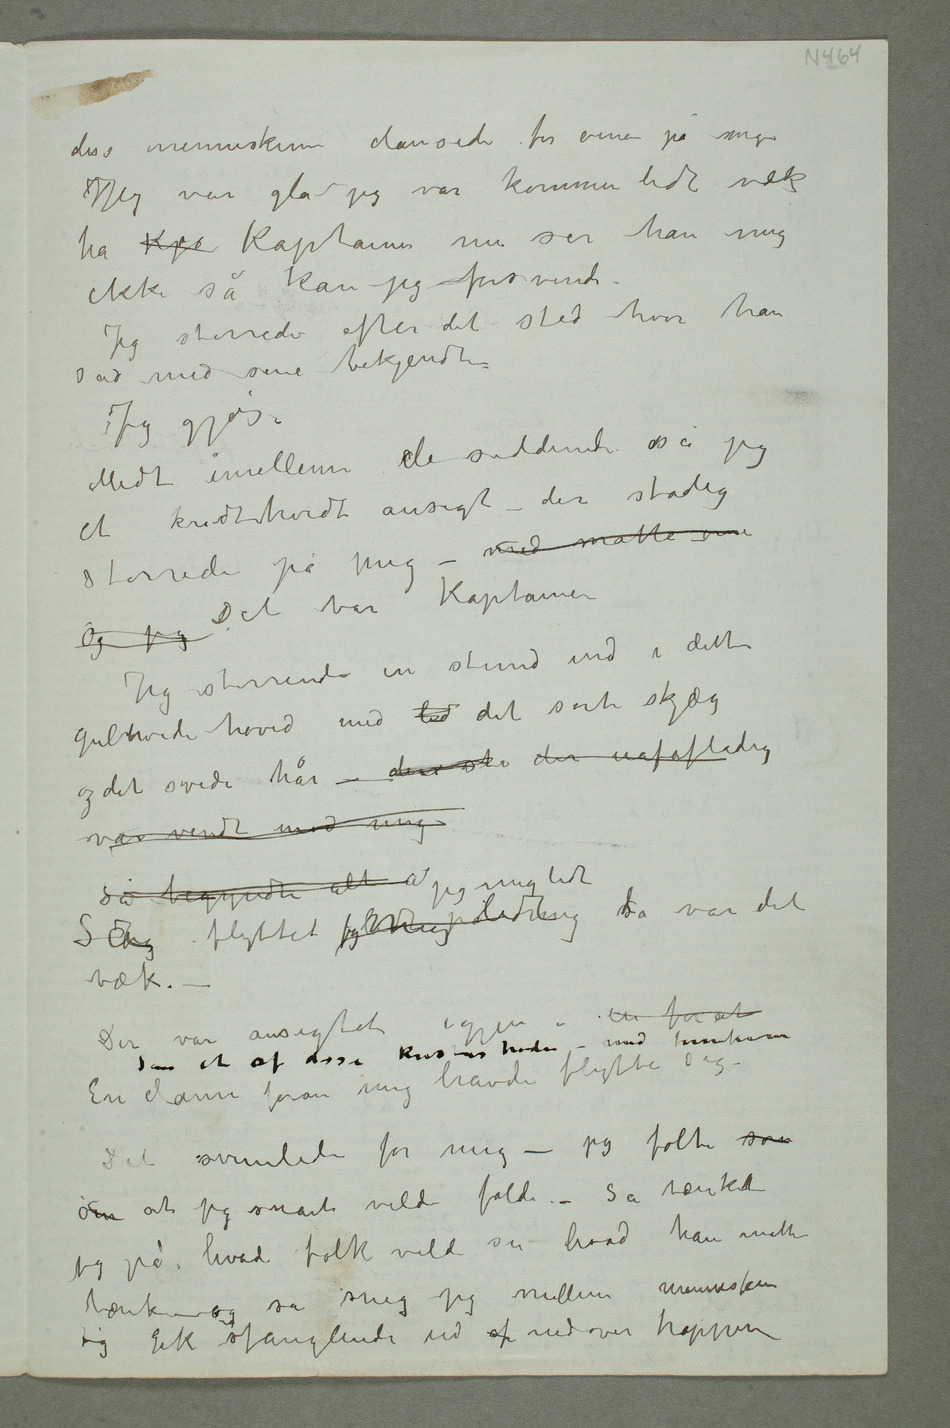 N464
diss menneskene dansede for øinene på mig
Jeg var gla jeg var kommen lidt væk
fra Kpa Kaptainen nu ser han mig
ikke så kan jeg forsvinde.
Jeg stirrede efter det sted hvor han
sad med sine bekjendte
Jeg gjøs.
Midt imellem de siddende så jeg
et kridthvidt ansigt – der stadig
stirrede på mig – med matte øine
Og jeg Det var Kaptainen
Jeg stirrende en stund ind i dette
gulhvide hoved med det sorte skjæg
og det svede hår – der uafafladelig
var vendt mod mig
Så begyndte alt a jeg mig lidt
Så flyttet jeg mig lidt så var det
væk. –
Der var ansigtet igjen – en for at
som et af disse kristus hoder – med tornekrone
En dame foran mig havde flyttet sig –
Det svimlede for mig – jeg følte som
om at jeg snart vilde falde. – Så tænkte
jeg på hvad folk vilde si hvad han måtte
tænke – og så sneg jeg mellem menneskene
og gik sjanglende ud af nedover trappen